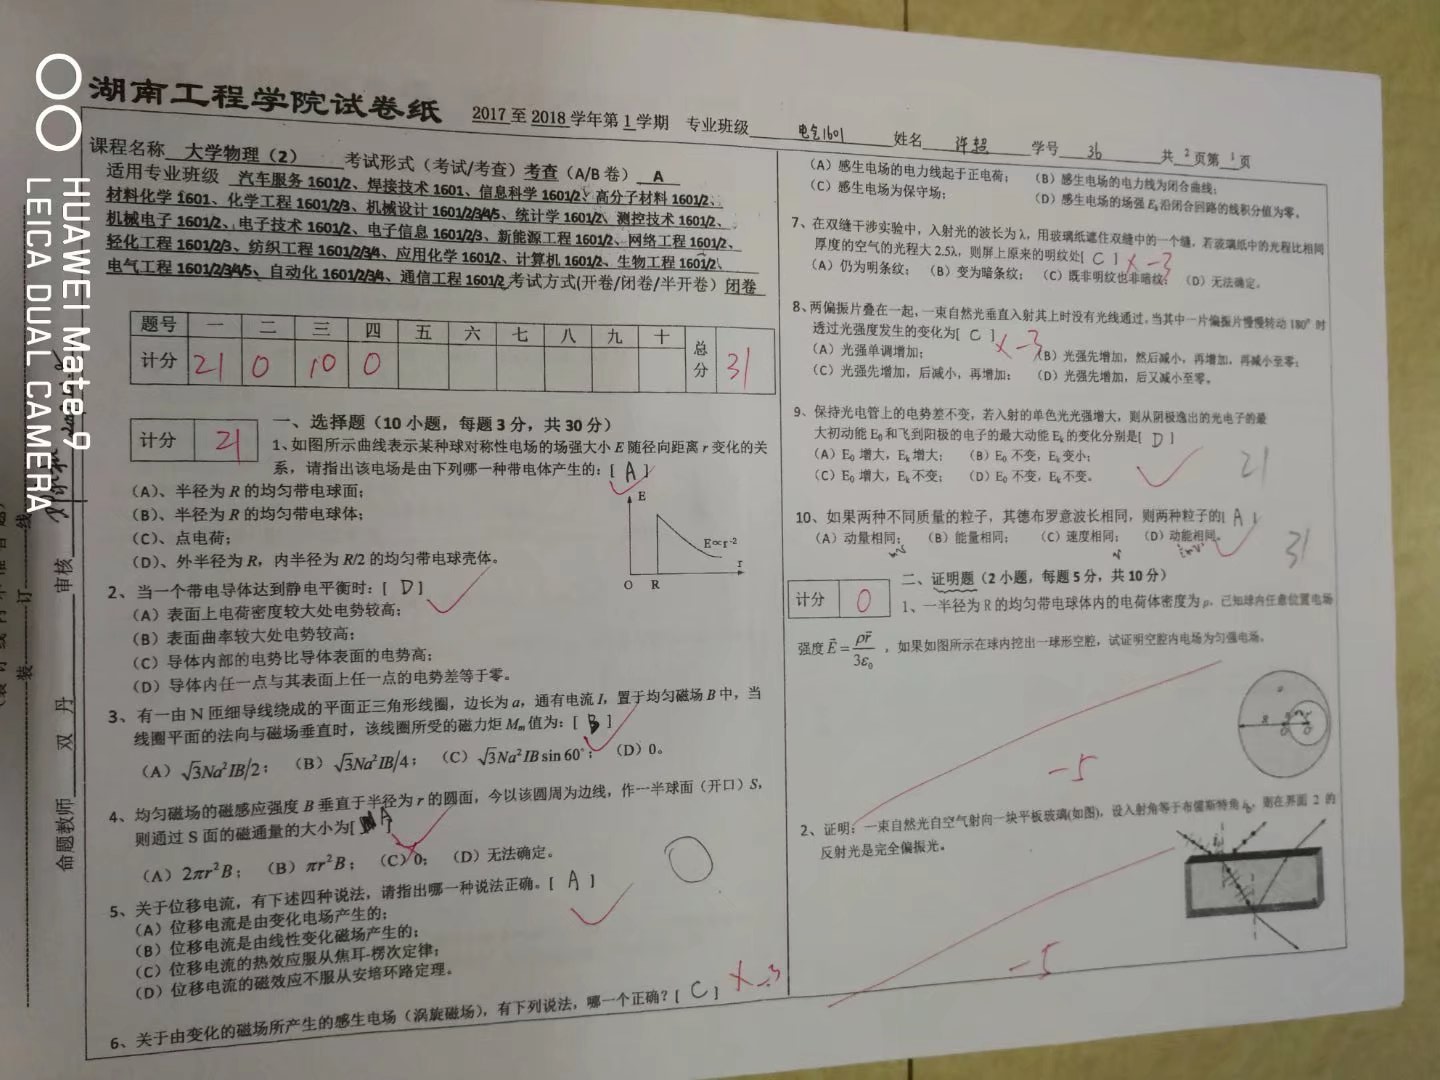 湖南工程学院试卷纸
2017至2018学年第1学期 专业班级 电气1601 姓名 许超 学号 36 共2页第1页
课程名称 大学物理（2） 考试形式（考试/考查）考查（A/B卷） A
适用专业班级 汽车服务1601/2、焊接技术1601、信息科学1601/2、高分子材料1601/2、
材料化学1601、化学工程1601/2/3、机械设计1601/2/3/4/5、统计学1601/2、测控技术1601/2、
机械电子1601/2、电子技术1601/2、电子信息1601/2/3、新能源工程1601/2、网络工程1601/2、
轻化工程1601/2/3、纺织工程1601/2/3/4、应用化学1601/2、计算机1601/2、生物工程1601/2、
电气工程1601/2/3/4/5、自动化1601/2/3/4、通信工程1601/2 考试方式(开卷/闭卷/半开卷) 闭卷
题号 一 二 三 四 五 六 七 八 九 十 总分
计分 21 0 10 0 31
计分 21
一、选择题（10小题，每题3分，共30分）
1、如图所示曲线表示某种球对称性电场的场强大小E随径向距离r变化的关
系，请指出该电场是由下列哪一种带电体产生的：[ A ]
(A)、半径为R的均匀带电球面；
(B)、半径为R的均匀带电球体；
(C)、点电荷；
(D)、外半径为R，内半径为R/2的均匀带电球壳体。
E
E∝r⁻²
r
O R
2、当一个带电导体达到静电平衡时：[ D ]
(A) 表面上电荷密度较大处电势较高；
(B) 表面曲率较大处电势较高；
(C) 导体内部的电势比导体表面的电势高；
(D) 导体内任一点与其表面上任一点的电势差等于零。
3、有一由N匝细导线绕成的平面正三角形线圈，边长为a，通有电流I，置于均匀磁场B中，当
线圈平面的法向与磁场垂直时，该线圈所受的磁力矩Mm值为：[ B ]
(A) √3Na²IB/2； (B) √3Na²IB/4； (C) √3Na²IB sin60°； (D) 0。
4、均匀磁场的磁感应强度B垂直于半径为r的圆面，今以该圆周为边线，作一半球面（开口）S，
则通过S面的磁通量的大小为[ A ]
(A) 2πr²B； (B) πr²B； (C) 0； (D) 无法确定。
5、关于位移电流，有下述四种说法，请指出哪一种说法正确。[ A ]
(A) 位移电流是由变化电场产生的；
(B) 位移电流是由线性变化磁场产生的；
(C) 位移电流的热效应服从焦耳-楞次定律；
(D) 位移电流的磁效应不服从安培环路定理。
6、关于由变化的磁场所产生的感生电场（涡旋磁场），有下列说法，哪一个正确？[ C ] ×-3
(A) 感生电场的电力线起于正电荷； (B) 感生电场的电力线为闭合曲线；
(C) 感生电场为保守场； (D) 感生电场的场强Ek沿闭合回路的线积分值为零。
7、在双缝干涉实验中，入射光的波长为λ，用玻璃纸遮住双缝中的一个缝，若玻璃纸中的光程比相同
厚度的空气的光程大2.5λ，则屏上原来的明纹处[ C ] ×-3
(A) 仍为明条纹； (B) 变为暗条纹； (C) 既非明纹也非暗纹； (D) 无法确定。
8、两偏振片叠在一起，一束自然光垂直入射其上时没有光线通过，当其中一片偏振片慢慢转动180°时
透过光强度发生的变化为[ C ] ×-3
(A) 光强单调增加； (B) 光强先增加，然后减小，再增加，再减小至零；
(C) 光强先增加，后减小，再增加； (D) 光强先增加，后又减小至零。
9、保持光电管上的电势差不变，若入射的单色光光强增大，则从阴极逸出的光电子的最
大初动能E0和飞到阳极的电子的最大动能Ek的变化分别是[ D ]
(A) E0增大，Ek增大； (B) E0不变，Ek变小；
(C) E0增大，Ek不变； (D) E0不变，Ek不变。
21
10、如果两种不同质量的粒子，其德布罗意波长相同，则两种粒子的[ A ]
(A) 动量相同； (B) 能量相同； (C) 速度相同； (D) 动能相同。
31
计分 0
二、证明题（2小题，每题5分，共10分）
1、一半径为R的均匀带电球体内的电荷体密度为ρ，已知球内任意位置电场
强度E=ρr/3ε0，如果如图所示在球内挖出一球形空腔，试证明空腔内电场为匀强电场。
-5
2、证明：一束自然光自空气射向一块平板玻璃(如图)，设入射角等于布儒斯特角ib，则在界面2的
反射光是完全偏振光。
-5
命题教师 双丹 审核
装 订 线
HUAWEI Mate 9
LEICA DUAL CAMERA